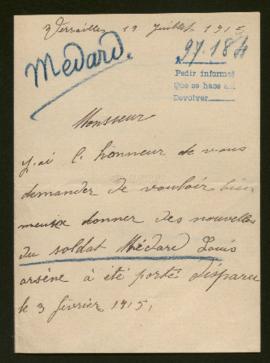 Versailles 19 Juillet 1915
Medard.
97.184
Pedir informe
Que se hace
Devolver
Monsseur
J'ai l'honneur de vous
demander de vouloir bien
meusse donner des nouvelles
du soldat Médard Louis
arsène à été porté disparu
le 3 février 1915,